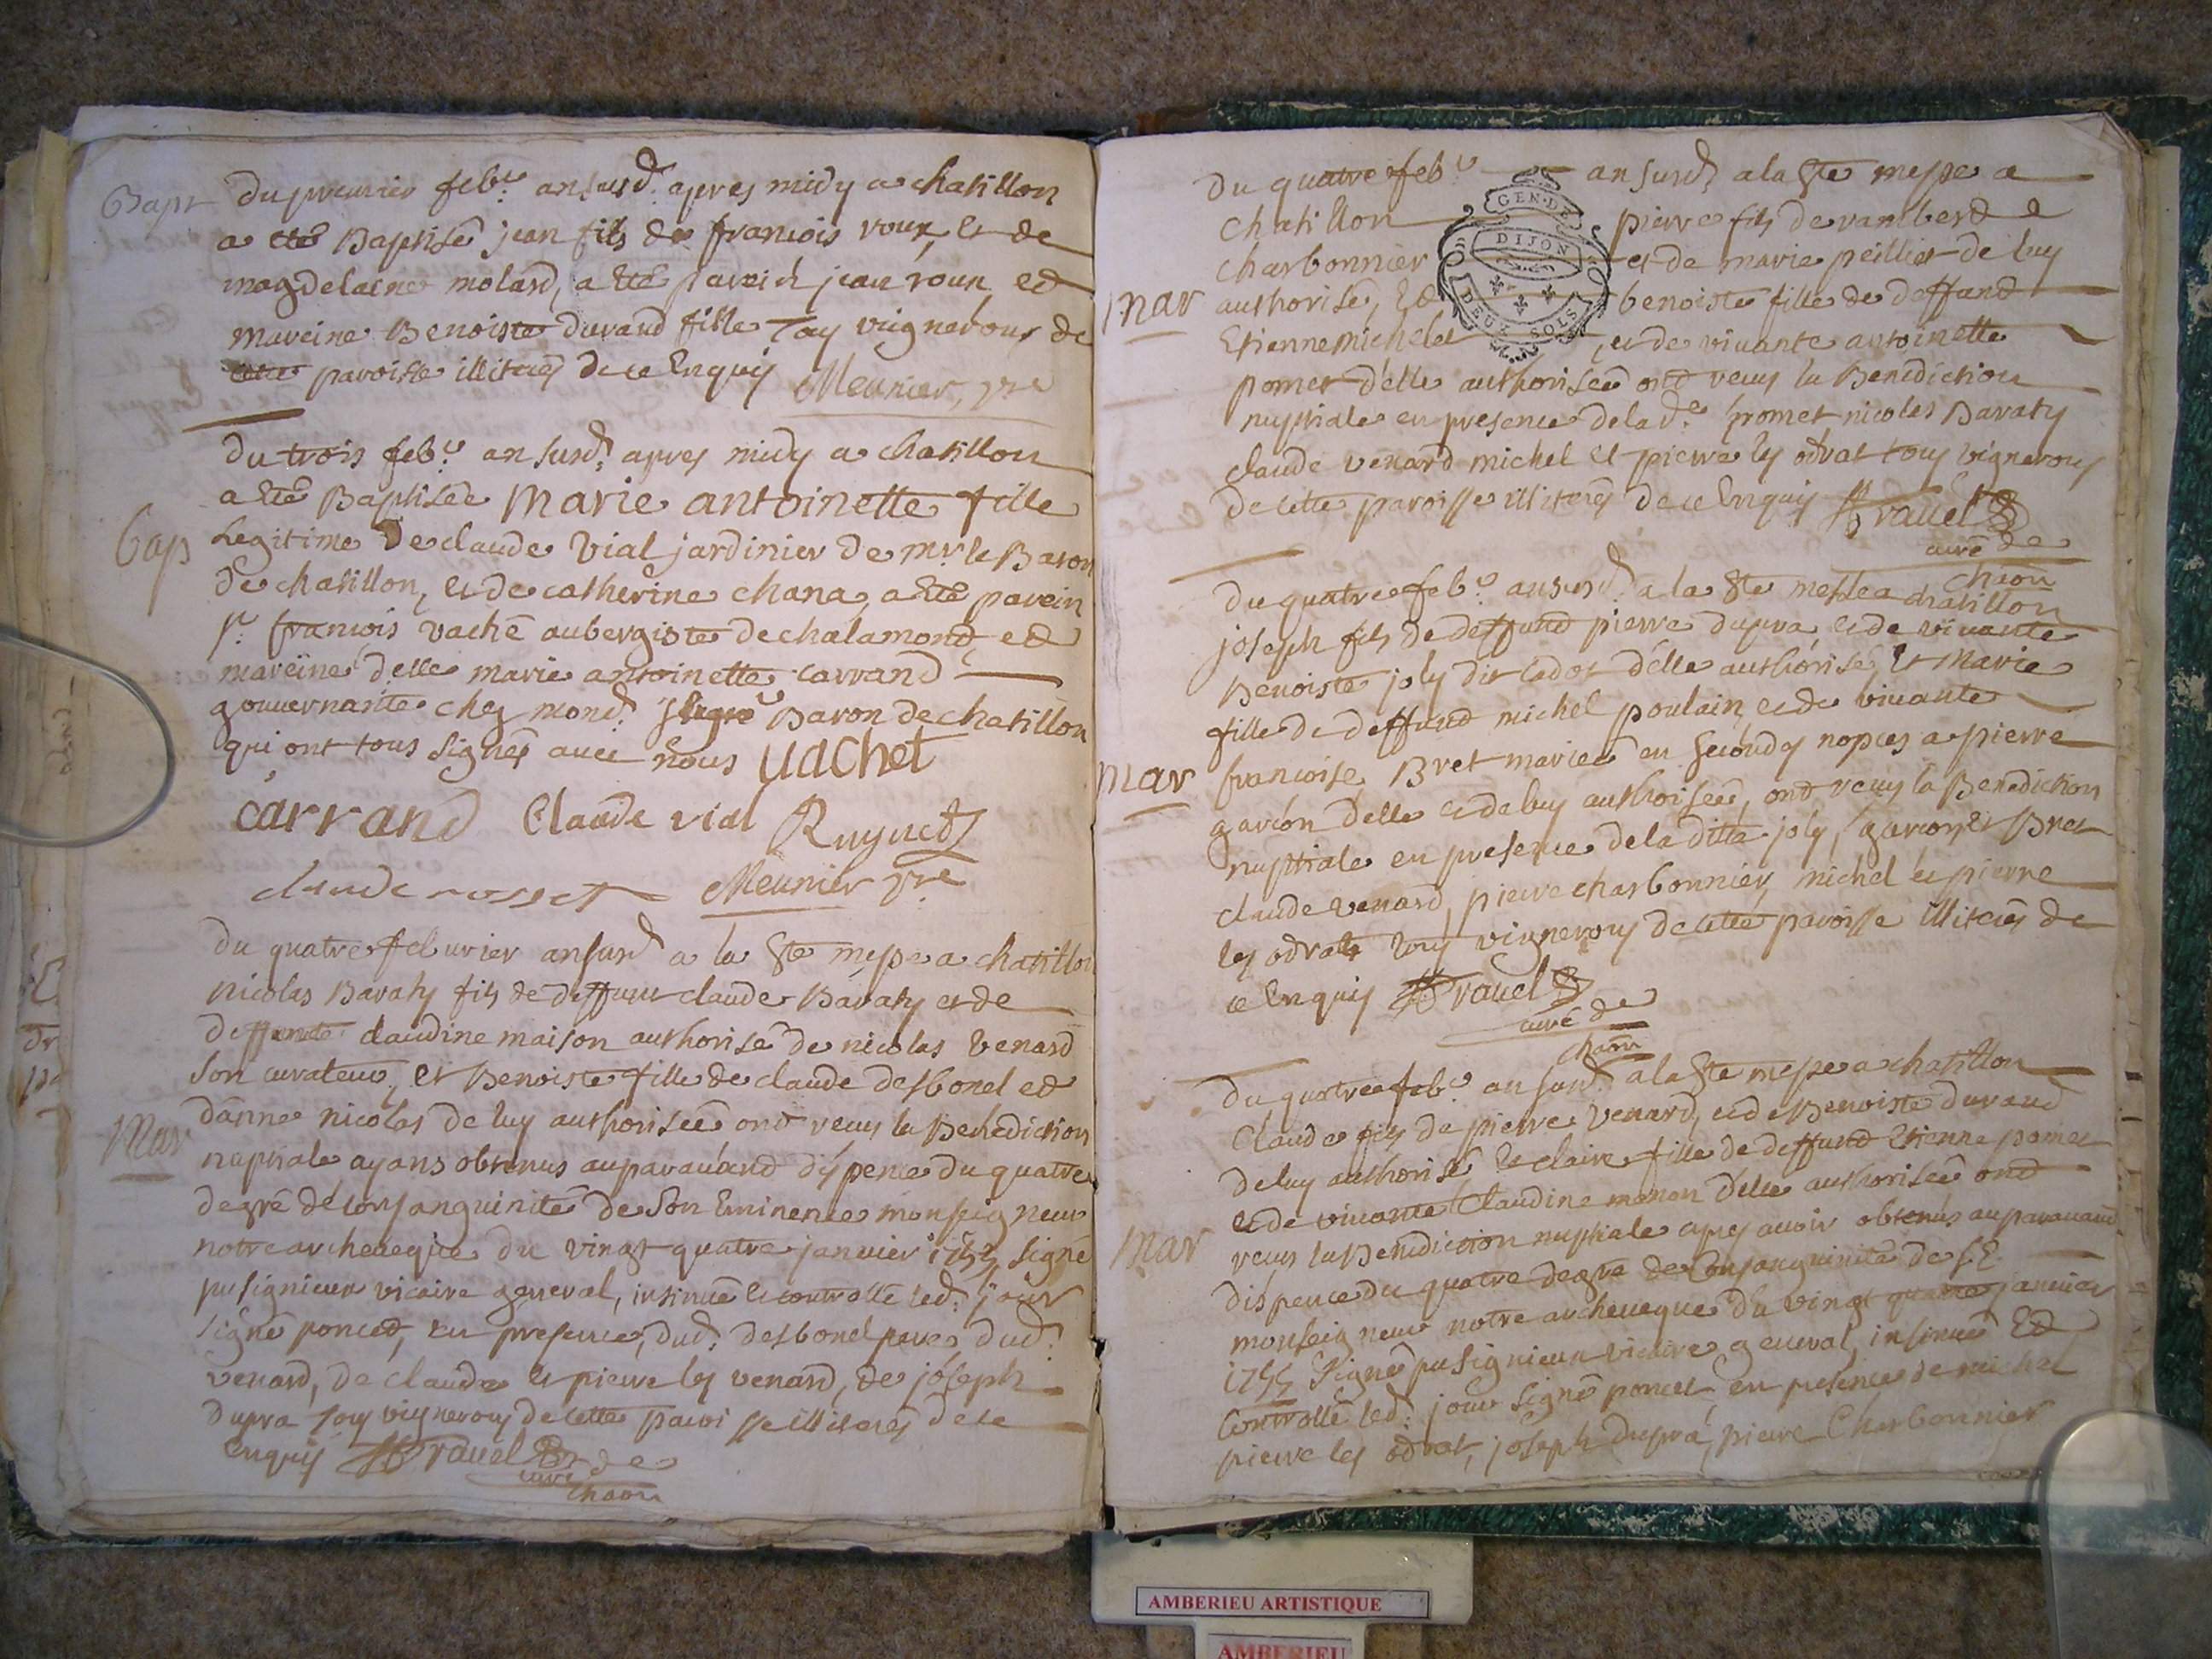 Bapt du premier feb.r an susd. apres midy a chatillon
a eté Baptisé jean fils de francois roux et de
magdelaine molard, a eté parein jean roux et
mareine Benoiste durand fille Tay vignerons de
cette paroisse illiterés de ce Enquis Meunier, pre
du trois feb.r an susd. apres midy a chatillon
a eté Baptisée Marie antoinette fille
Bap Legitime De claude Vial jardinier de mr. le Baron
de chatillon, et de catherine chana, a eté parein
sr. francois vaché aubergiste de chalamond, et
mareine delle marie antoinette carrand
gouvernante chez mond. Baron de chatillon
qui ont tous signés avec nous Vachet
carrand Claude vial
claude rosset Meunier pre
du quatre feburier an susd a la Ste messe a chatillon
nicolas Baraty fils de deffunt claude Baraty et de
deffunte claudine maison authorisé de nicolas venard
son curateur, et Benoiste fille de claude desbonel et
Mar danne nicolas de luy authorisée ont reçus la Benediction
nuptiale ayans obtenus auparauand dispence du quatre
degré de consanguinité de Son Eminence monseigneur
notre archeveque du vingt quatre januier 1755 signé
pusignieux vicaire general, insinué et controllé led. jour
signé poncet, en presence, dud. desbonel pere, dud.
venard, de claude et pierre les venard, de joseph
dupra tous vignerons de cette paroisse illiterés de ce
Enquis Bravel curé de
chaon
du quatre feb.r an susd. a la Ste messe a
chatillon pierre fils de rambert
charbonnier et de marie peillier de luy
mar authorisé, et benoiste fille de deffund
Etienne michelet, et de vivante antoinette
pomet d'elle authorisée ont reçus la Benediction
nuptiale en presence de lad.e pomet nicolas Baraty
claude venard michel et pierre les odrat tous vignerons
de cette paroisse illiterés de ce Enquis Bravel
curé de
chaon
du quatre feb.r an susd. a la Ste messe a chatillon
joseph fils de deffund pierre dupra et de vivante
Benoiste joly dit cadot d'elle authorisé, et Marie
fille de deffund michel poulain, et de vivante
mar francoise Bret mariée en secondes nopces a pierre
garçon d'elle et de luy authorisée, ont reçus la Benediction
nuptiale en presence de la ditte joly, garçon, et Bret
claude venard, pierre charbonnier, michel et pierre
les odrat tous vignerons de cette paroisse illiterés de
ce Enquis Bravel
curé de
chaon
du quatre feb.r an susd. a la Ste messe a chatillon
Claude fils de pierre venard, et de Benoiste durand
de luy authorisé et claire fille de deffund Etienne pomet
et de vivante Claudine manon d'elle authorisée ont
mar reçus la Benediction nuptiale apres avoir obtenus auparavand
dispence du quatre degré de Consanguinité de S.E.
monseigneur notre archeveque du vingt quatre januier
1755 signé pusignieux vicaire general, insinué et
Controllé led. jour signé poncet en presence de michel
pierre les odrat, joseph dupra, pierre Charbonnier
GEN. DE
DIJON
DEUX SOLS
AMBERIEU ARTISTIQUE
AMBERIEU